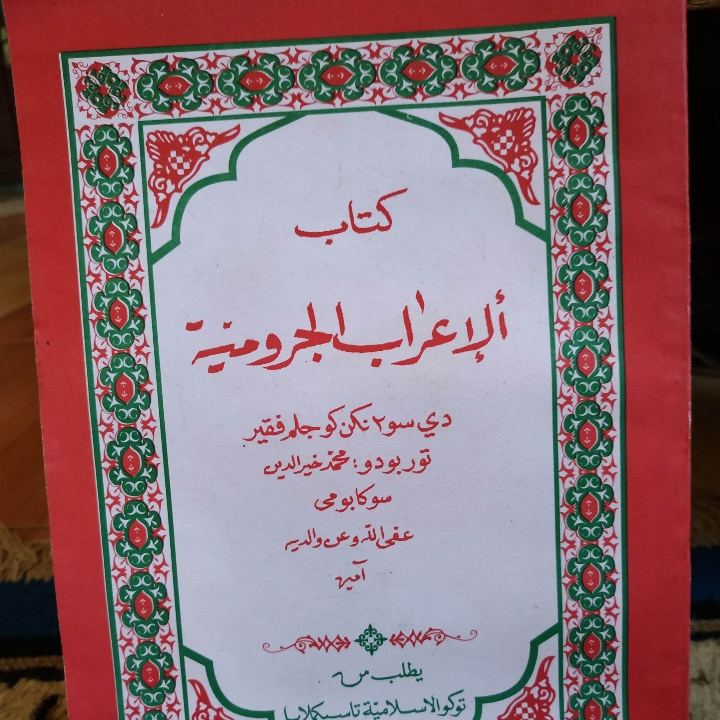 كتاب
ألإعراب الجرومية
دي سو٢نكن كو جلم فقير
تور بودو؛ محمد خير الدين
سوكابومي
عفى الله وعن والديه
آمين
يطلب من
توكو الاسلامية تاسيكملايا